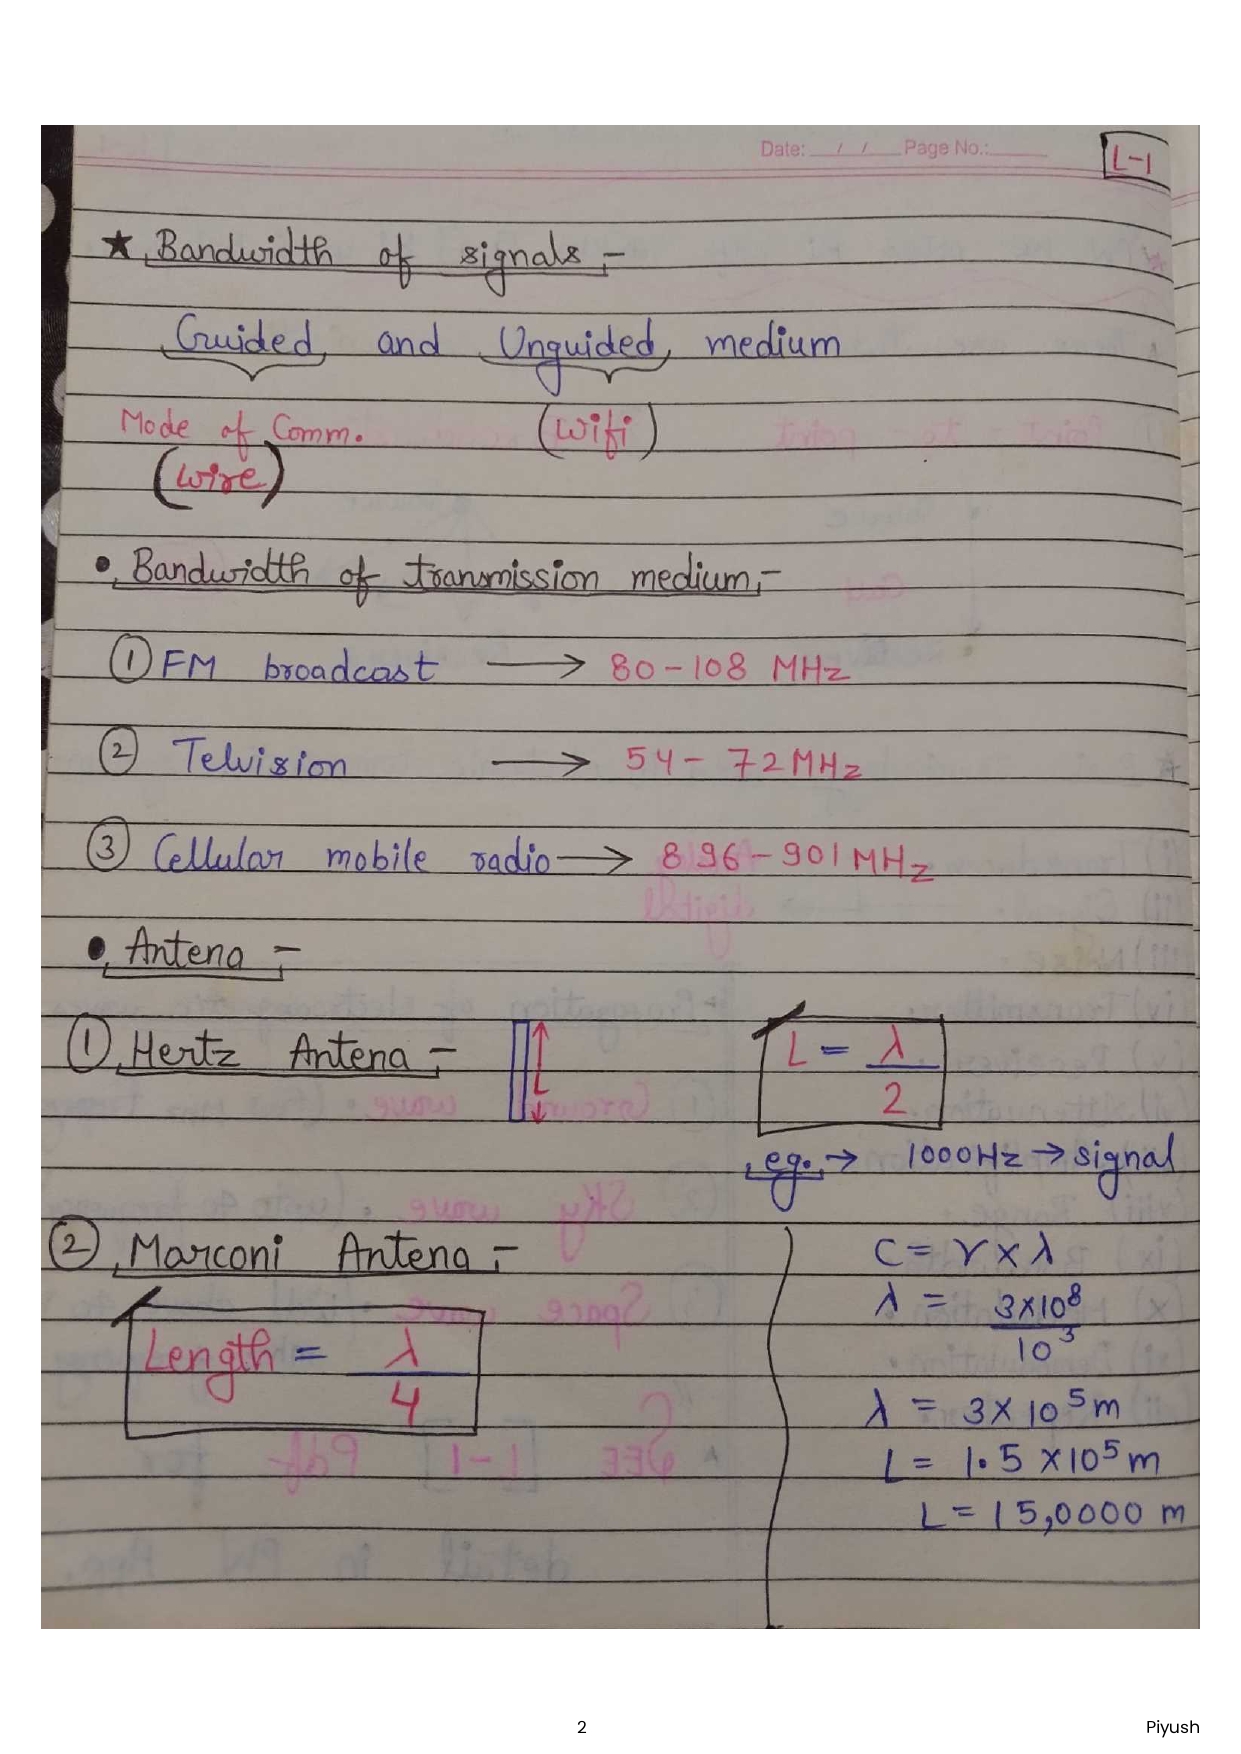 Date: __/__/__ Page No.:_____
L-1
★ Bandwidth of signals :-
Guided and Unguided medium
Mode of Comm. (Wifi)
(Wire)
• Bandwidth of transmission medium :-
① FM broadcast → 80-108 MHz
② Telvision → 54 - 72 MHz
③ Cellular mobile radio → 896-901 MHz
• Antena :-
① Hertz Antena :- L L = λ/2
eg. → 1000Hz → signal
② Marconi Antena :-
C = ν × λ
λ = 3×10⁸/10³
Length = λ/4
λ = 3 × 10⁵ m
L = 1.5 × 10⁵ m
L = 15,0000 m
2
Piyush